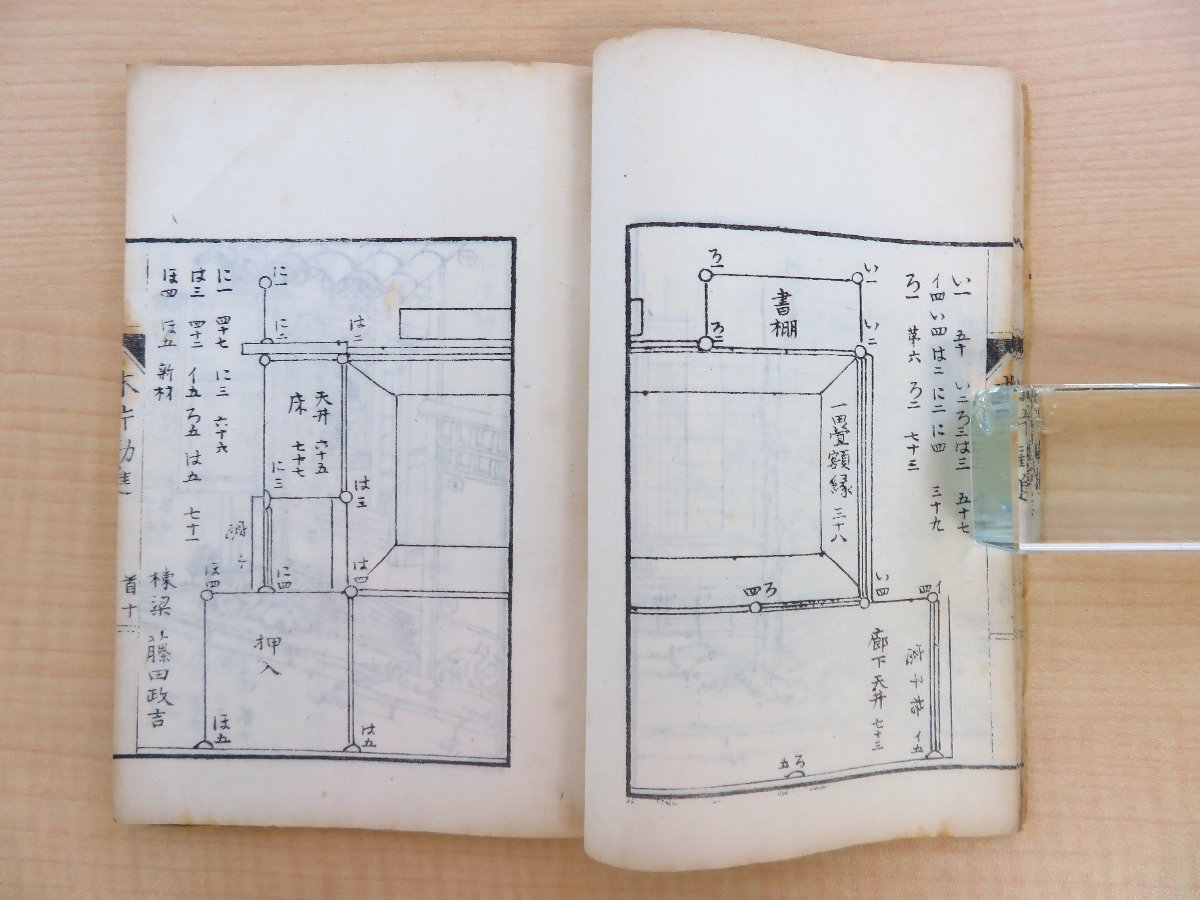 い一 五十 いニろ三は三 五十七
イ四い四はニにニに四 三十九
ろ一 第六 ろニ 七十三
い一
ろ一
書棚
いニ
ろニ
一畳額縁 三十八
い四
ろ四
イ四
廊下天井 七十三
イ五
ろ五
はニ
に一
にニ
天井 六十五
床 七十七
は三
に三
は四
に四
ほ四
押入
は五
ほ五
に一 四十七 に三 六十六
は三 四十二 イ五ろ五は五 七十一
ほ四 ほ五 新材
棟梁 藤田政吉
木片勧進
首十